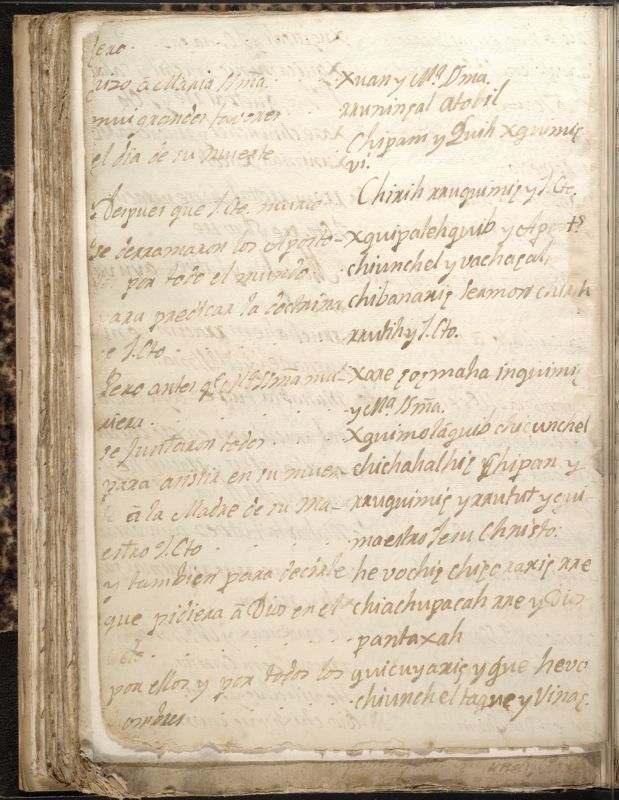 hizo ā Maria ssm̄a. Xuan y Mᵃ Ssma.
muy grandes favores rruninsal atobil
el dia de su muerte Chipam y Quih xguimię
vi.
Despues que J. Cto. murio Chirih rruquimię y J. Cto.
se derramaron los Aposto- xquipalehquib y Apostˢ
por todo el mundo chiunchel y vachaçah
para predicar la doctrina chibanarię sermon chirih
de J. Cto rrutih y J. Cto.
Pero antes q̄ Mᵃ Ssm̄a mu- Xare ço maha inquimię
riera y Mᵃ Ssm̄a.
se juntaron todos Xquimolaquib chicunchel
para asistir en su muer- chichahalhię Chipan y
te ā la Madre de su Ma- rruquimię y rrutut y qui-
estro J. Cto maestro Jesu Christo.
y tambien para decirle he vochię chiçorarię rre
que pidiera ā Dios en el chiachupacah rre y Dios
pantaxah
por ellos y por todos los quicuyarię y que hevo
ombres chiunchel taque y Vinaę.